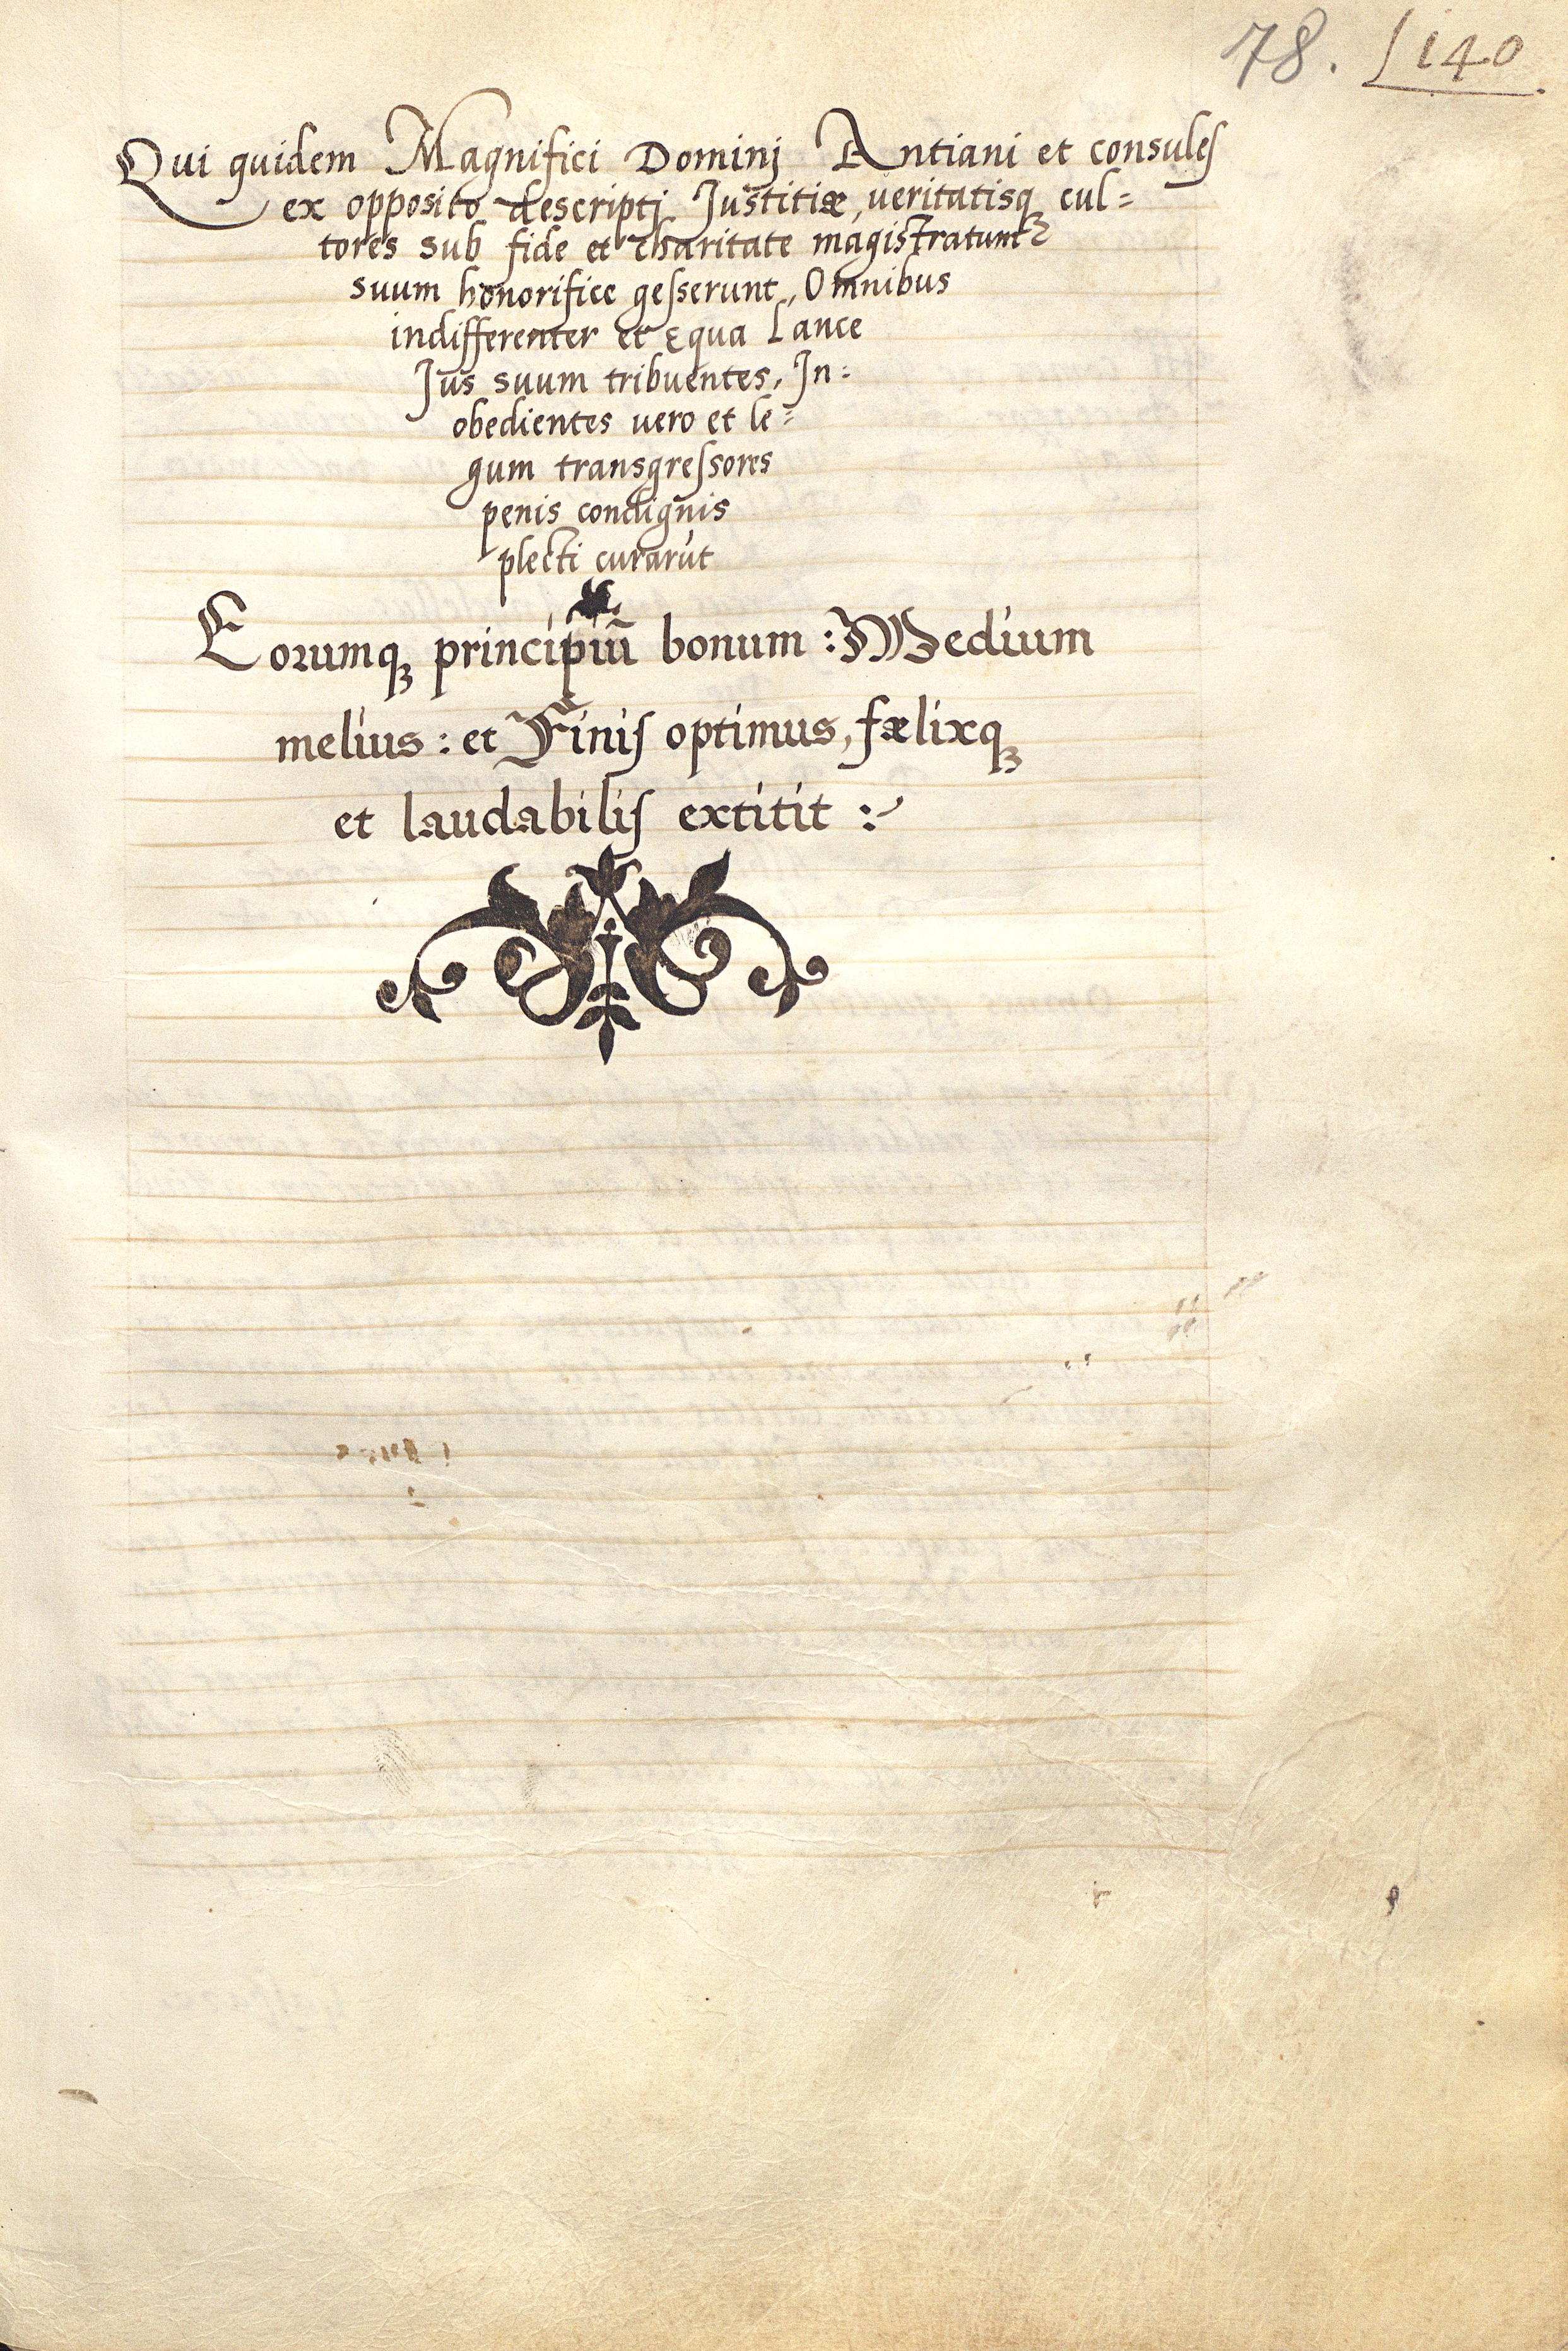 78. 140
Qui quidem Magnifici Dominj Antiani et consules
ex opposito descriptj Justitiæ, veritatisq cul=
tores sub fide et charitate magistratum
suum honorifice gesserunt, Omnibus
indifferenter et equa Lance
Jus suum tribuentes, In=
obedientes vero et le=
gum transgressores
penis condignis
plecti curarūt
Eorumq principiū bonum : Medium
melius : et Finis optimus, fælixq
et laudabilis extitit :